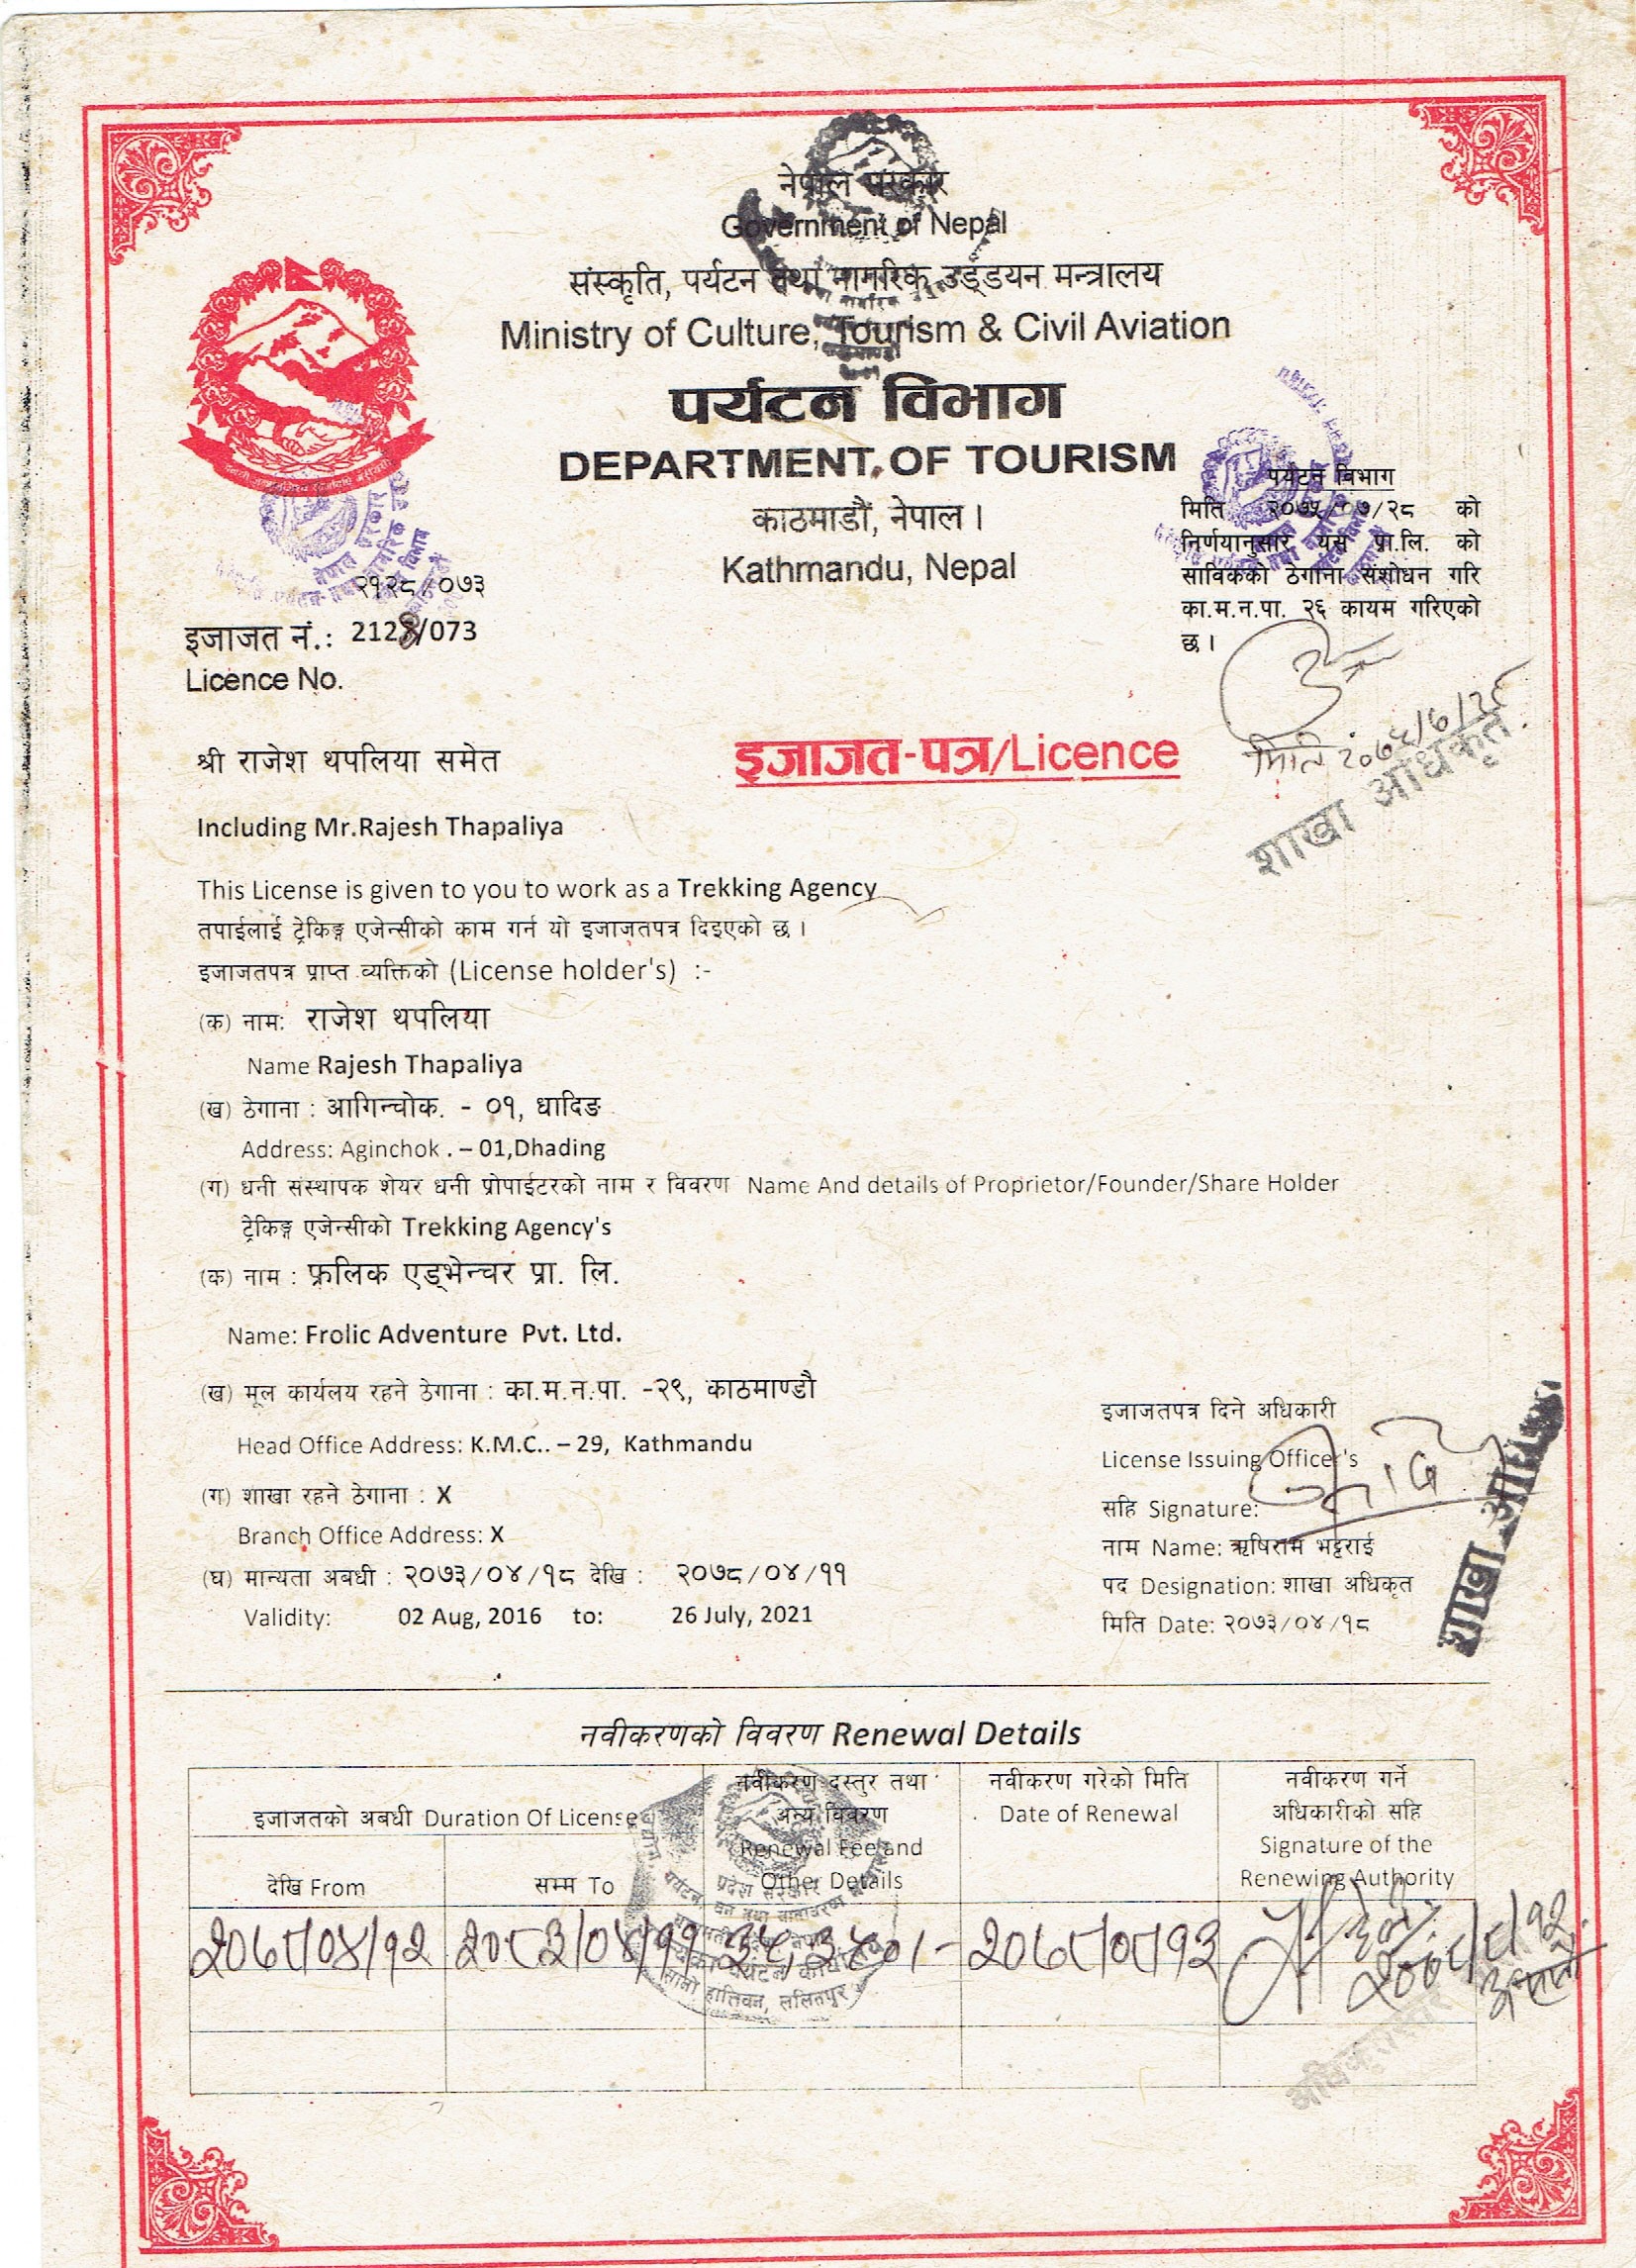 नेपाल सरकार
Government of Nepal
संस्कृति, पर्यटन तथा नागरिक उड्डयन मन्त्रालय
Ministry of Culture, Tourism & Civil Aviation
पर्यटन विभाग
DEPARTMENT OF TOURISM
काठमाडौं, नेपाल ।
Kathmandu, Nepal
पर्यटन विभाग
मिति २०७५/०७/२८ को
निर्णयानुसार यस प्रा.लि. को
साविकको ठेगाना संशोधन गरि
का.म.न.पा. २६ कायम गरिएको
छ ।
मिति
शाखा अधिकृत
२१२८/०७३
इजाजत नं.: 2128/073
Licence No.
श्री राजेश थपलिया समेत
इजाजत-पत्र/Licence
Including Mr.Rajesh Thapaliya
This License is given to you to work as a Trekking Agency
तपाईलाई ट्रेकिङ्ग एजेन्सीको काम गर्न यो इजाजतपत्र दिइएको छ ।
इजाजतपत्र प्राप्त व्यक्तिको (License holder's) :-
(क) नाम: राजेश थपलिया
Name Rajesh Thapaliya
(ख) ठेगाना : आगिन्चोक. - ०१, धादिङ
Address: Aginchok . – 01,Dhading
(ग) धनी संस्थापक शेयर धनी प्रोपाईटरको नाम र विवरण Name And details of Proprietor/Founder/Share Holder
ट्रेकिङ्ग एजेन्सीको Trekking Agency's
(क) नाम : फ्रलिक एड्भेन्चर प्रा. लि.
Name: Frolic Adventure Pvt. Ltd.
(ख) मूल कार्यलय रहने ठेगाना : का.म.न.पा. -२९, काठमाण्डौ
Head Office Address: K.M.C.. – 29, Kathmandu
(ग) शाखा रहने ठेगाना : X
Branch Office Address: X
(घ) मान्यता अबधी : २०७३/०४/१८ देखि : २०७८/०४/११
Validity: 02 Aug, 2016 to: 26 July, 2021
इजाजतपत्र दिने अधिकारी
License Issuing Officer's
सहि Signature:
नाम Name: ऋषिराम भट्टराई
पद Designation: शाखा अधिकृत
मिति Date: २०७३/०४/१८
शाखा अधिकृत
नवीकरणको विवरण Renewal Details
इजाजतको अबधी Duration Of License
देखि From
सम्म To
नवीकरण दस्तुर तथा
अन्य विवरण
Renewal Fee and
Other Details
नवीकरण गरेको मिति
Date of Renewal
नवीकरण गर्ने
अधिकारीको सहि
Signature of the
Renewing Authority
२०७८/०४/१२ २०८३/०४/११ २०७८/०८/१३
प्रदेश सरकार
सानो हात्तिवन, ललितपुर